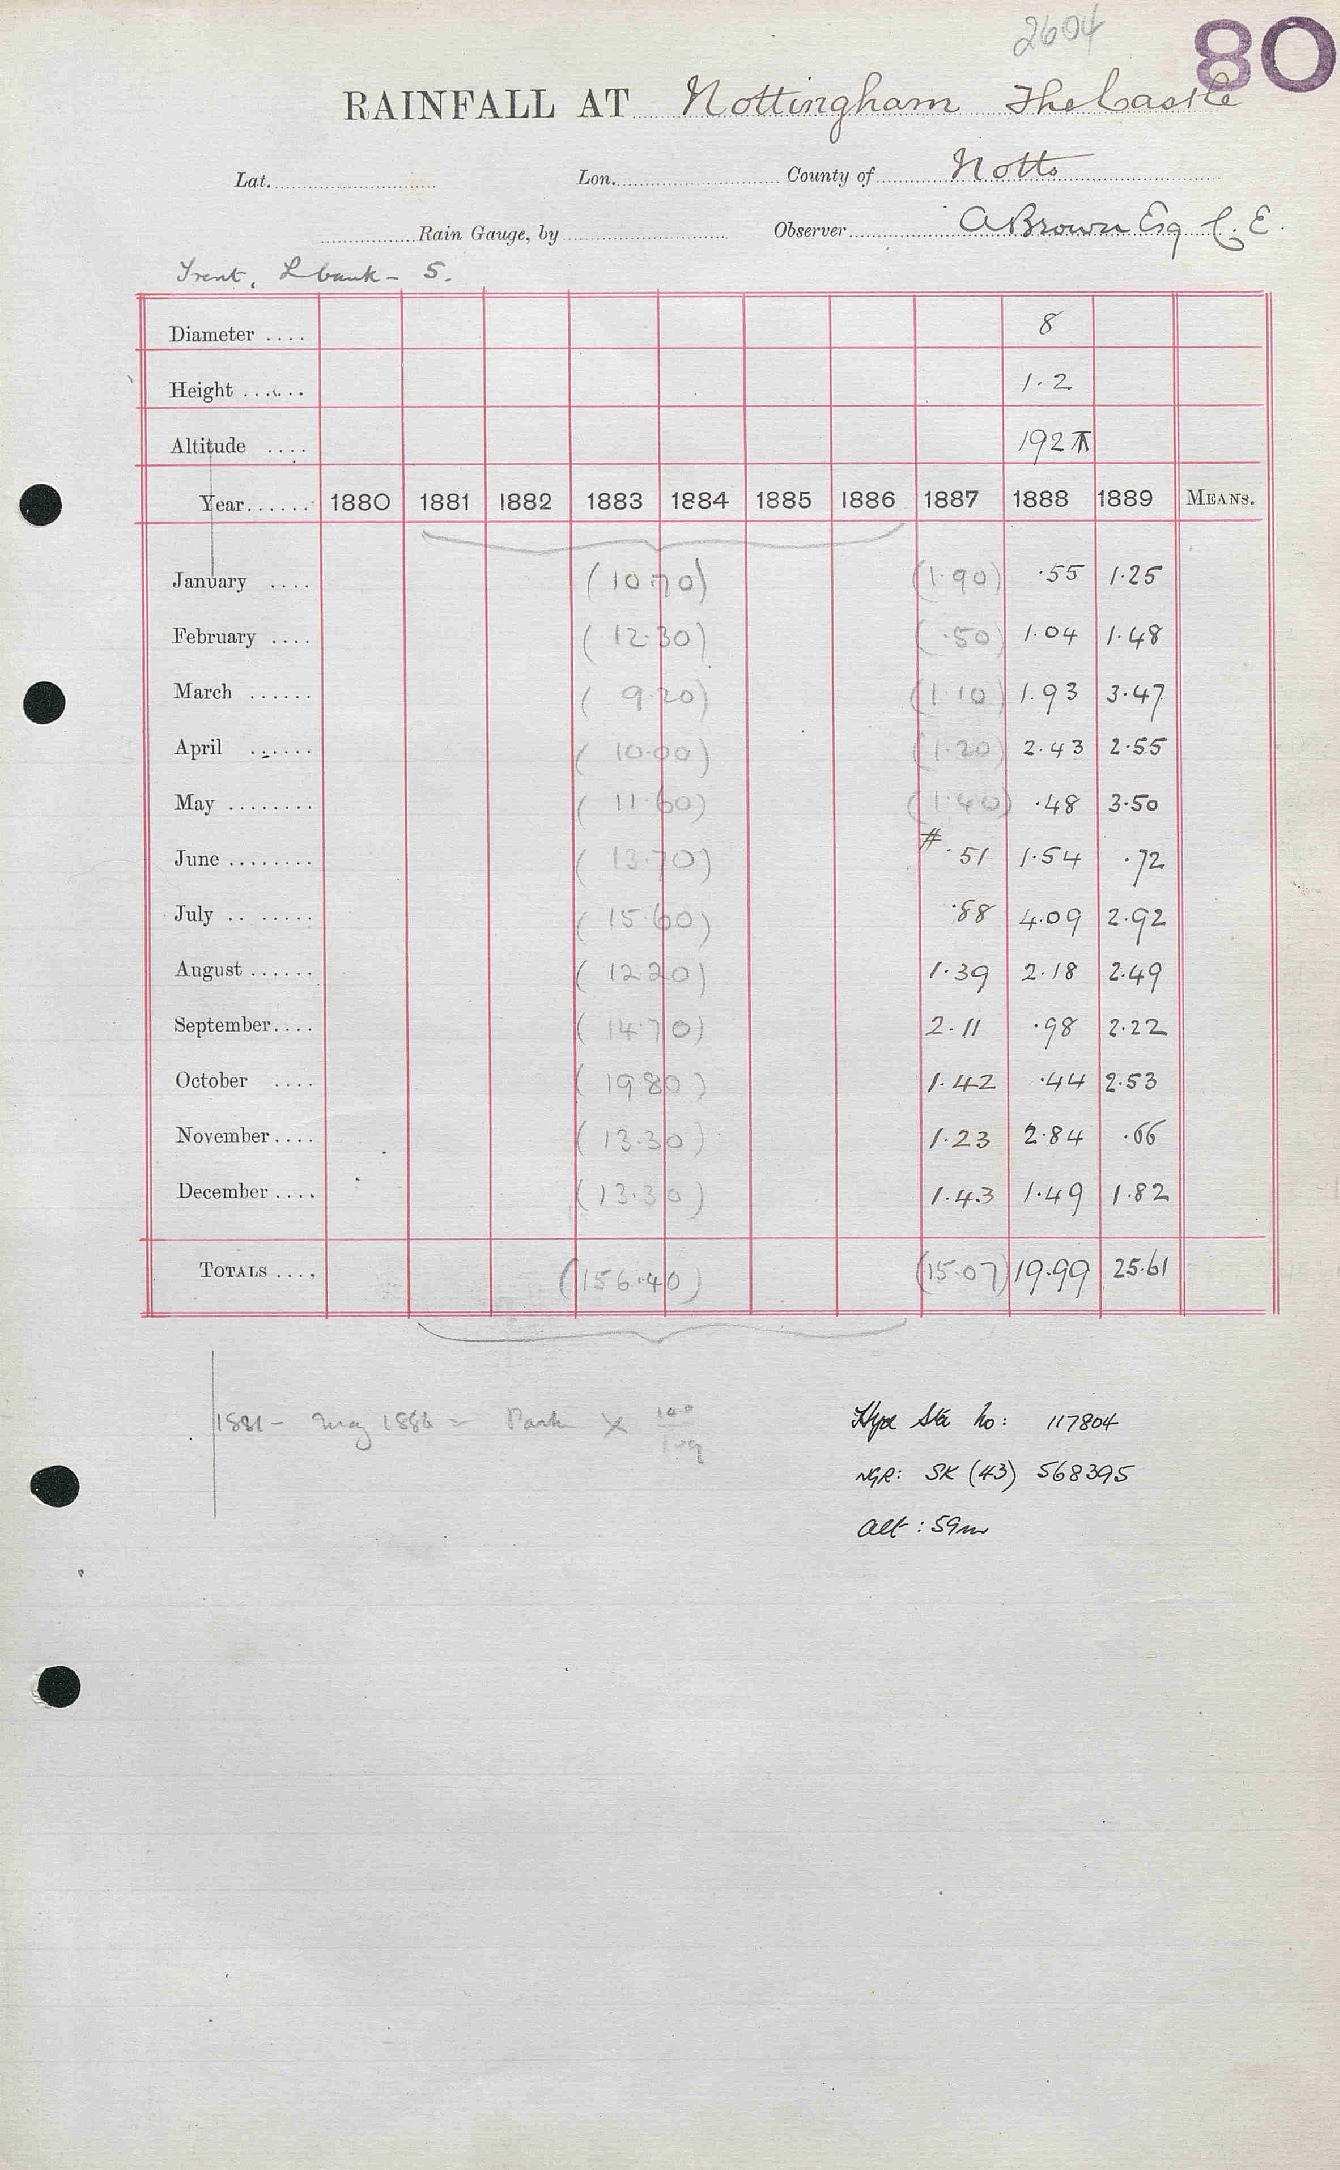 2604
80
RAINFALL AT Nottingham The Castle
Lat. Lon. County of Notts
Rain Gauge, by Observer A Brown Esq C. E.
Trent, L bank - 5.
Diameter .... 8
Height ...... 1.2
Altitude .... 192 T
Year...... 1880 1881 1882 1883 1884 1885 1886 1887 1888 1889 MEANS.
January .... (10.70) (1.90) .55 1.25
February .... (12.30) (.50) 1.04 1.48
March ...... (9.20) (1.10) 1.93 3.47
April ...... (10.00) (1.20) 2.43 2.55
May ........ (11.60) (1.40) .48 3.50
June ........ (13.70) # .51 1.54 .72
July .. ..... (15.60) .88 4.09 2.92
August ...... (12.20) 1.39 2.18 2.49
September.... (14.70) 2.11 .98 2.22
October .... (19.80) 1.42 .44 2.53
November.... (13.30) 1.23 2.84 .66
December .... (13.30) 1.43 1.49 1.82
TOTALS .... (156.40) (15.07) 19.99 25.61
1881 - May 1886 = Park × 100
109
Hyd Sta No: 117804
NGR: SK (43) 568395
Alt: 59m